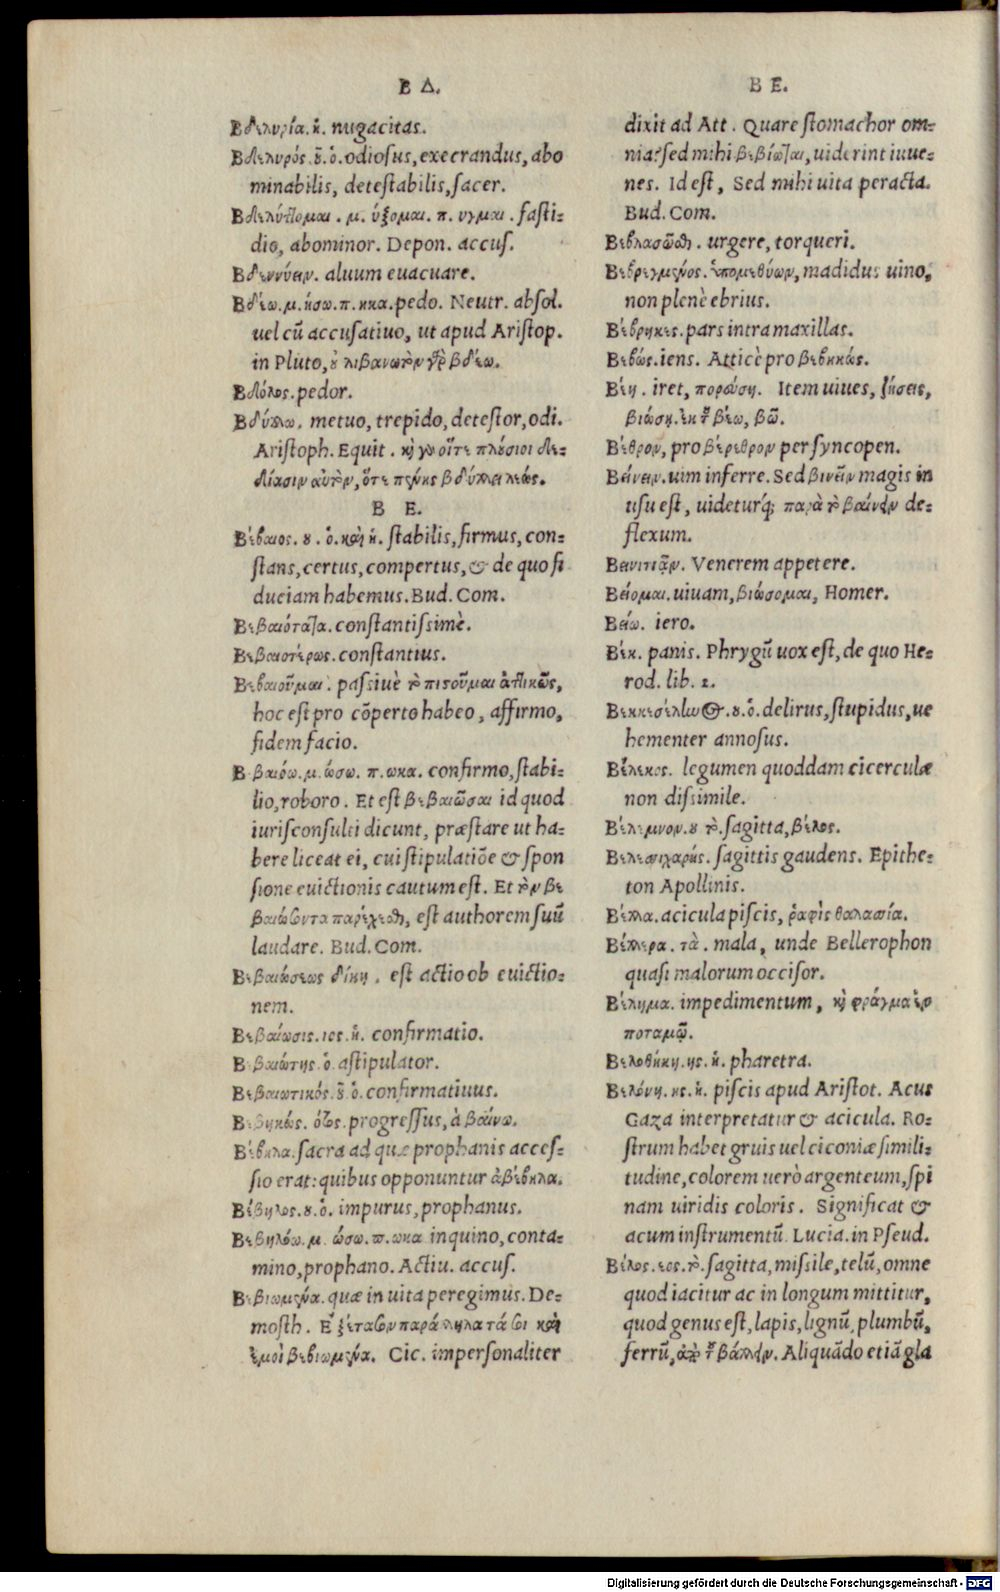 B Δ.
Βδελυρία. ἡ. nugacitas.
Βδελυρός. οῦ. ὁ. odiosus, execrandus, abo
minabilis, detestabilis, sacer.
Βδελύττομαι. μ. ύξομαι. π. υγμαι. fasti=
dio, abominor. Depon. accus.
Βδεννύειν. aluum euacuare.
Βδέω. μ. ήσω. π. ηκα. pedo. Neutr. absol.
uel cũ accusatiuo, ut apud Aristop.
in Pluto, οὐ λιβανωτὸν γὰρ βδέω.
Βδόλος. pedor.
Βδύττω. metuo, trepido, detestor, odi.
Aristoph. Equit. καὶ γὰρ οἵτε πλούσιοι δε=
δίασιν αὐτὸν, ὅτε πένης βδύττει λεώς.
B E.
Βέβαιος. ου. ὁ. καὶ ἡ. stabilis, firmus, con=
stans, certus, compertus, & de quo fi
duciam habemus. Bud. Com.
Βεβαιότατα. constantissimè.
Βεβαιοτέρως. constantius.
Βεβαιοῦμαι. passiuè τὸ πιστοῦμαι ἀττικῶς,
hoc est pro cõperto habeo, affirmo,
fidem facio.
Βεβαιόω. μ. ώσω. π. ωκα. confirmo, stabi=
lio, roboro. Et est βεβαιῶσαι id quod
iurisconsulti dicunt, præstare ut ha=
bere liceat ei, cui stipulatiõe & spon
sione euictionis cautum est. Et τὸν βε
βαιώσοντα παρέχεσθαι, est authorem suũ
laudare. Bud. Com.
Βεβαιώσεως δίκη. est actio ob euictio=
nem.
Βεβαίωσις. ιος. ἡ. confirmatio.
Βεβαιώτης. ὁ. astipulator.
Βεβαιωτικός. οῦ. ὁ. confirmatiuus.
Βεβηκώς. ότος. progressus, à βαίνω.
Βέβηλα. sacra ad quæ prophanis acces=
sio erat: quibus opponuntur ἀβέβηλα.
Βέβηλος. ου. ὁ. impurus, prophanus.
Βεβηλόω. μ. ώσω. π. ωκα inquino, conta=
mino, prophano. Actiu. accus.
Βεβιωμένα. quæ in uita peregimus. De=
mosth. Ἐξέτασον παράλληλα τά σοι καὶ
ἐμοὶ βεβιωμένα. Cic. impersonaliter
B E.
dixit ad Att. Quare stomachor om=
nia: sed mihi βεβίωται, uiderint iuue=
nes. Id est, Sed mihi uita peracta.
Bud. Com.
Βεβλασῶσθαι. urgere, torqueri.
Βεβρεγμένος. ὑπομεθύων, madidus uino,
non plenè ebrius.
Βέβρηκες. pars intra maxillas.
Βεβώς. iens. Atticè pro βεβηκώς.
Βέῃ. iret, πορεύσῃ. Item uiues, ζήσεις,
βιώσῃ. ἐκ τοῦ βέω, βῶ.
Βέθρον, pro βέρεθρον per syncopen.
Βείνειν. uim inferre. Sed βινεῖν magis in
usu est, uideturq́; παρὰ τὸ βαίνειν de=
flexum.
Βεινιτιᾶν. Venerem appetere.
Βείομαι. uiuam, βιώσομαι, Homer.
Βείω. iero.
Βέκ. panis. Phrygũ uox est, de quo He=
rod. lib. 2.
Βεκκεσέληνος. ου. ὁ. delirus, stupidus, ue
hementer annosus.
Βέλεκος. legumen quoddam cicerculæ
non dissimile.
Βέλεμνον. ου τὸ. sagitta, βέλος.
Βελεσιχαρής. sagittis gaudens. Epithe=
ton Apollinis.
Βέλλα. acicula piscis, ῥαφὶς θαλασσία.
Βέλλερα. τὰ. mala, unde Bellerophon
quasi malorum occisor.
Βέλημα. impedimentum, καὶ φράγμα ἐν
ποταμῷ.
Βελοθήκη. ης. ἡ. pharetra.
Βελόνη. ης. ἡ. piscis apud Aristot. Acus
Gaza interpretatur & acicula. Ro=
strum habet gruis uel ciconiæ simili=
tudine, colorem uerò argenteum, spi
nam uiridis coloris. Significat &
acum instrumentũ. Lucia. in Pseud.
Βέλος. εος. τὸ. sagitta, missile, telũ, omne
quod iacitur ac in longum mittitur,
quod genus est, lapis, lignũ, plumbũ,
ferrũ, ἀπὸ τοῦ βάλλειν. Aliquãdo etiã gla
Digitalisierung gefördert durch die Deutsche Forschungsgemeinschaft - DFG